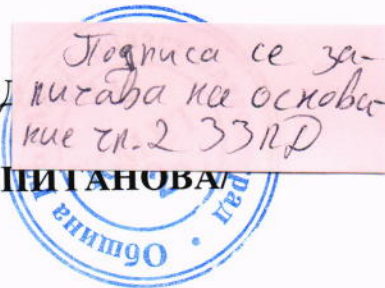 Подписа се за-
личава на основа-
ние чл. 2 ЗЗЛД
ПИТАНОВА/
Община
рад